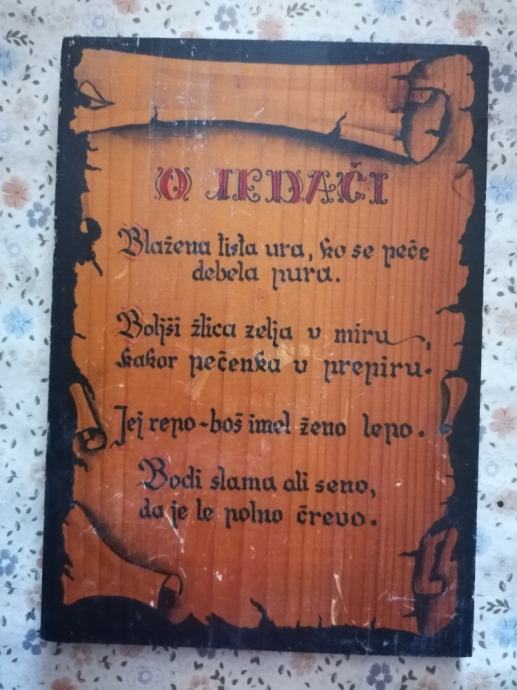 O JEDAČI
Blažena tista ura, ko se peče
debela pura.
Boljši žlica zelja v miru,
kakor pečenka v prepiru.
Jej repo-boš imel ženo lepo.
Bodi slama ali seno,
da je le polno črevo.